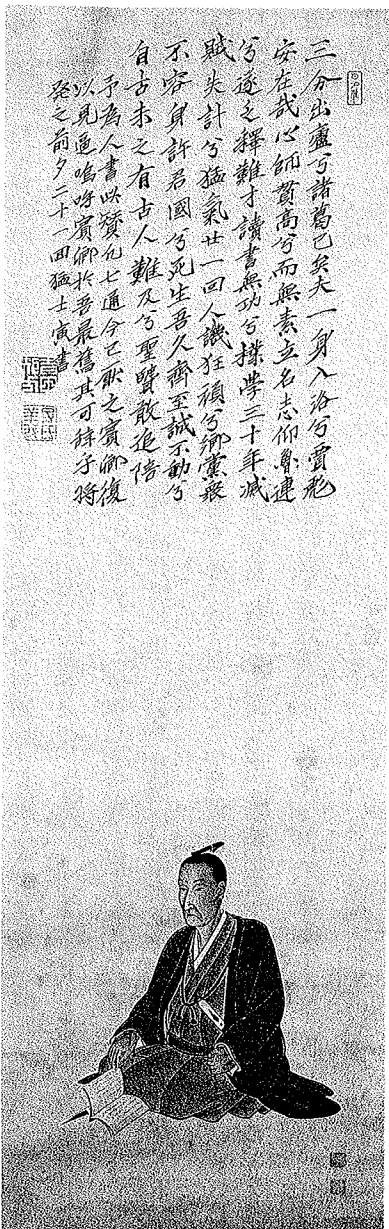 三分出廬兮諸葛已矣夫一身入洛兮賈彪
安在哉心師貫高兮而無素立名志仰魯連
兮遂乏釋難才讀書無功兮樸學三十年滅
賊失計兮猛氣廿一回人譏狂頑兮鄉黨衆
不容身許君國兮死生吾久齊至誠不動兮
自古未之有古人難及兮聖賢敢追陪
予為人書此贊凡七通今已厭之賓卿復
以見逼嗚呼賓卿於吾最舊其可拒乎將
發之前夕二十一回猛士寅書